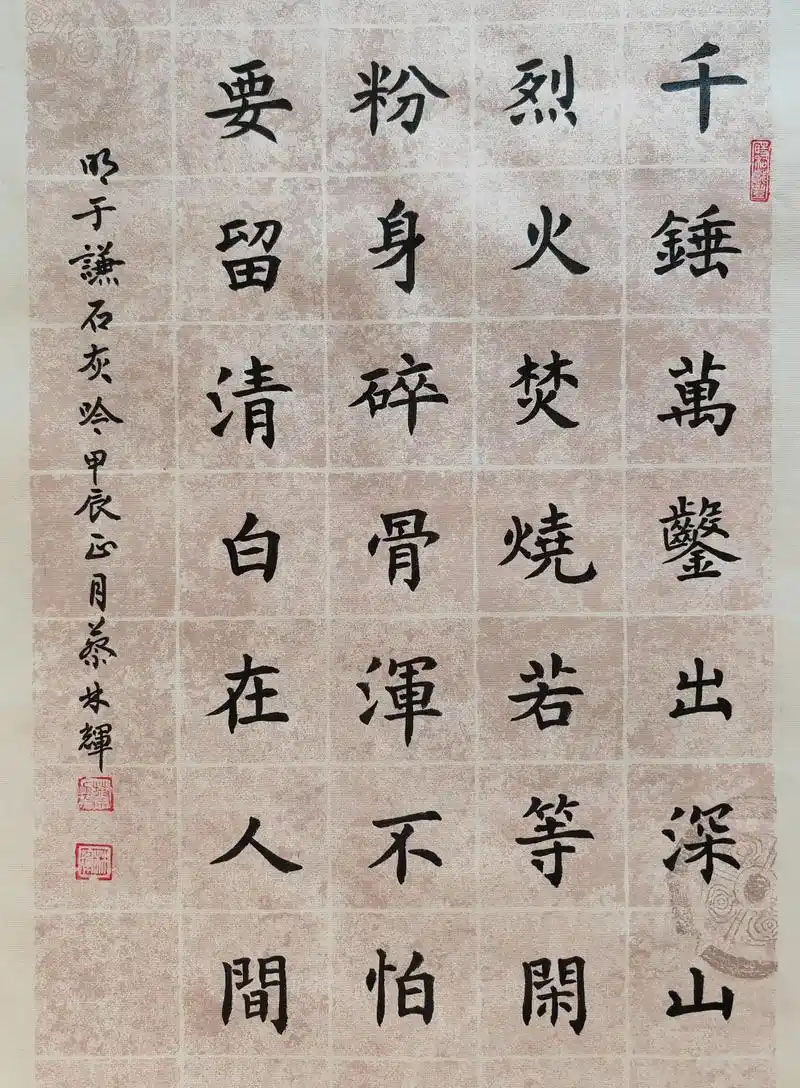 千錘萬鑿出深山
烈火焚燒若等閑
粉身碎骨渾不怕
要留清白在人間
明于謙石灰吟甲辰正月蔡林輝